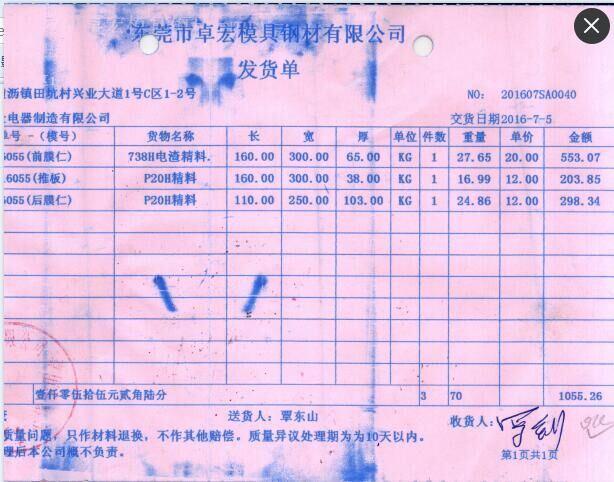 东莞市卓宏模具钢材有限公司
发货单
沥镇田坑村兴业大道1号C区1-2号 NO: 201607SA0040
电器制造有限公司 交货日期2016-7-5
单号 -(模号) 货物名称 长 宽 厚 单位 件数 重量 单价 金额
6055(前膜仁) 738H电渣精料. 160.00 300.00 65.00 KG 1 27.65 20.00 553.07
6055(推板) P20H精料 160.00 300.00 38.00 KG 1 16.99 12.00 203.85
6055(后膜仁) P20H精料 110.00 250.00 103.00 KG 1 24.86 12.00 298.34
壹仟零伍拾伍元贰角陆分 3 70 1055.26
送货人: 覃东山 收货人:
质量问题, 只作材料退换, 不作其他赔偿。质量异议处理期为为10天以内。
理后本公司概不负责。 第1页共1页